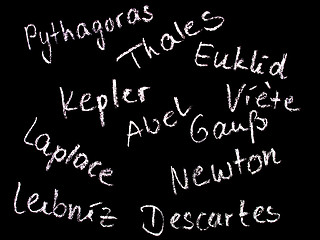 Pythagoras
Thales
Euklid
Kepler
Viète
Abel
Gauß
Laplace
Newton
Leibniz
Descartes